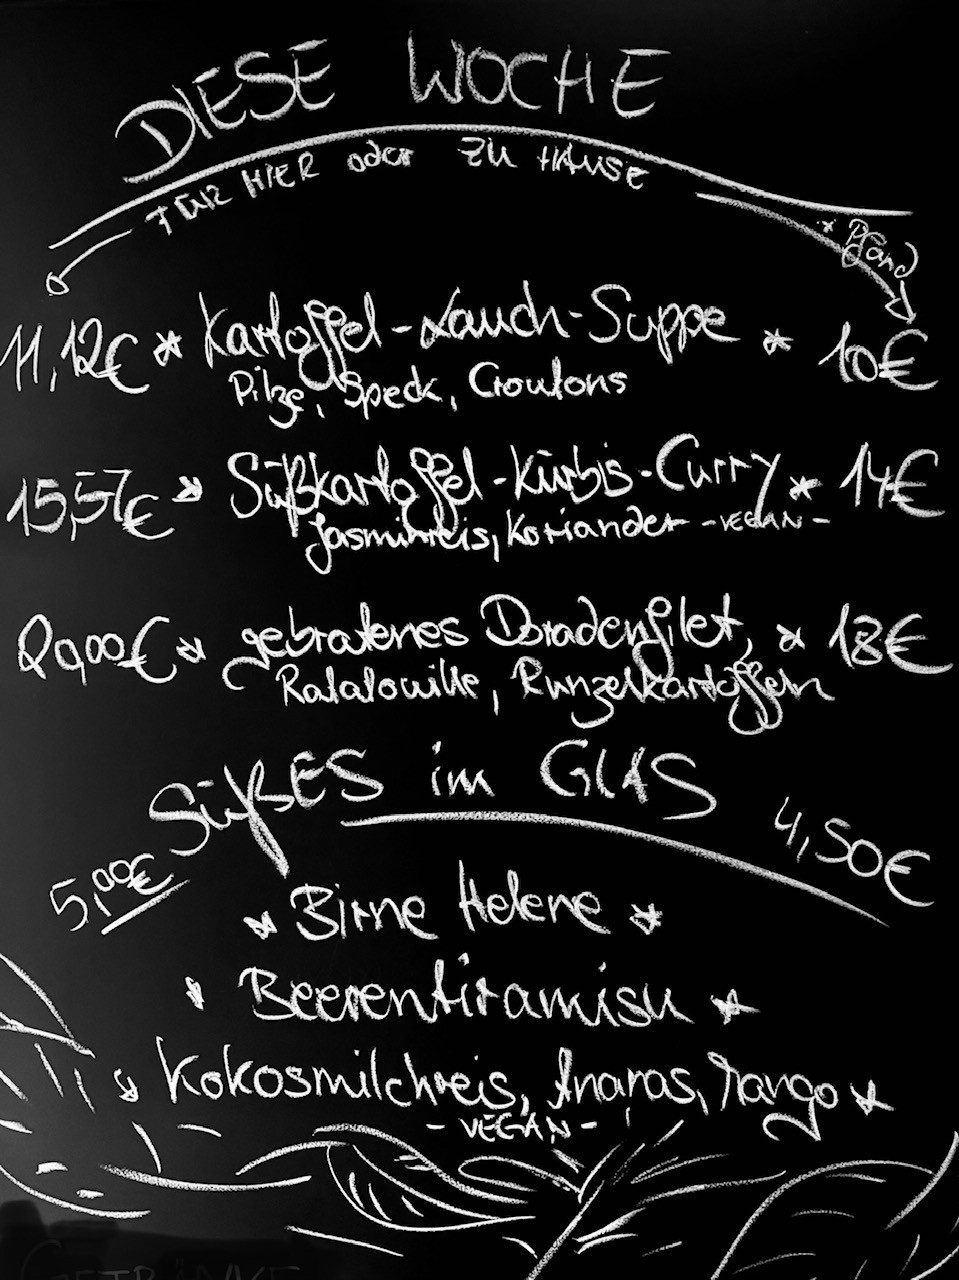 DIESE WOCHE
FÜR HIER oder ZU HAUSE
* Pfand
11,12€ * Kartoffel-Lauch-Suppe * 10€
Pilze, Speck, Croutons
15,57€ * Süßkartoffel-Kürbis-Curry * 14€
Jasminreis, Koriander - VEGAN -
20,00€ * gebratenes Doradenfilet, * 18€
Ratatouille, Runzelkartoffeln
SüßES im GLAS
5,00€ 4,50€
* Birne Helene *
* Beerentiramisu *
* Kokosmilchreis, Ananas, Mango *
- VEGAN -
GETRÄNKE